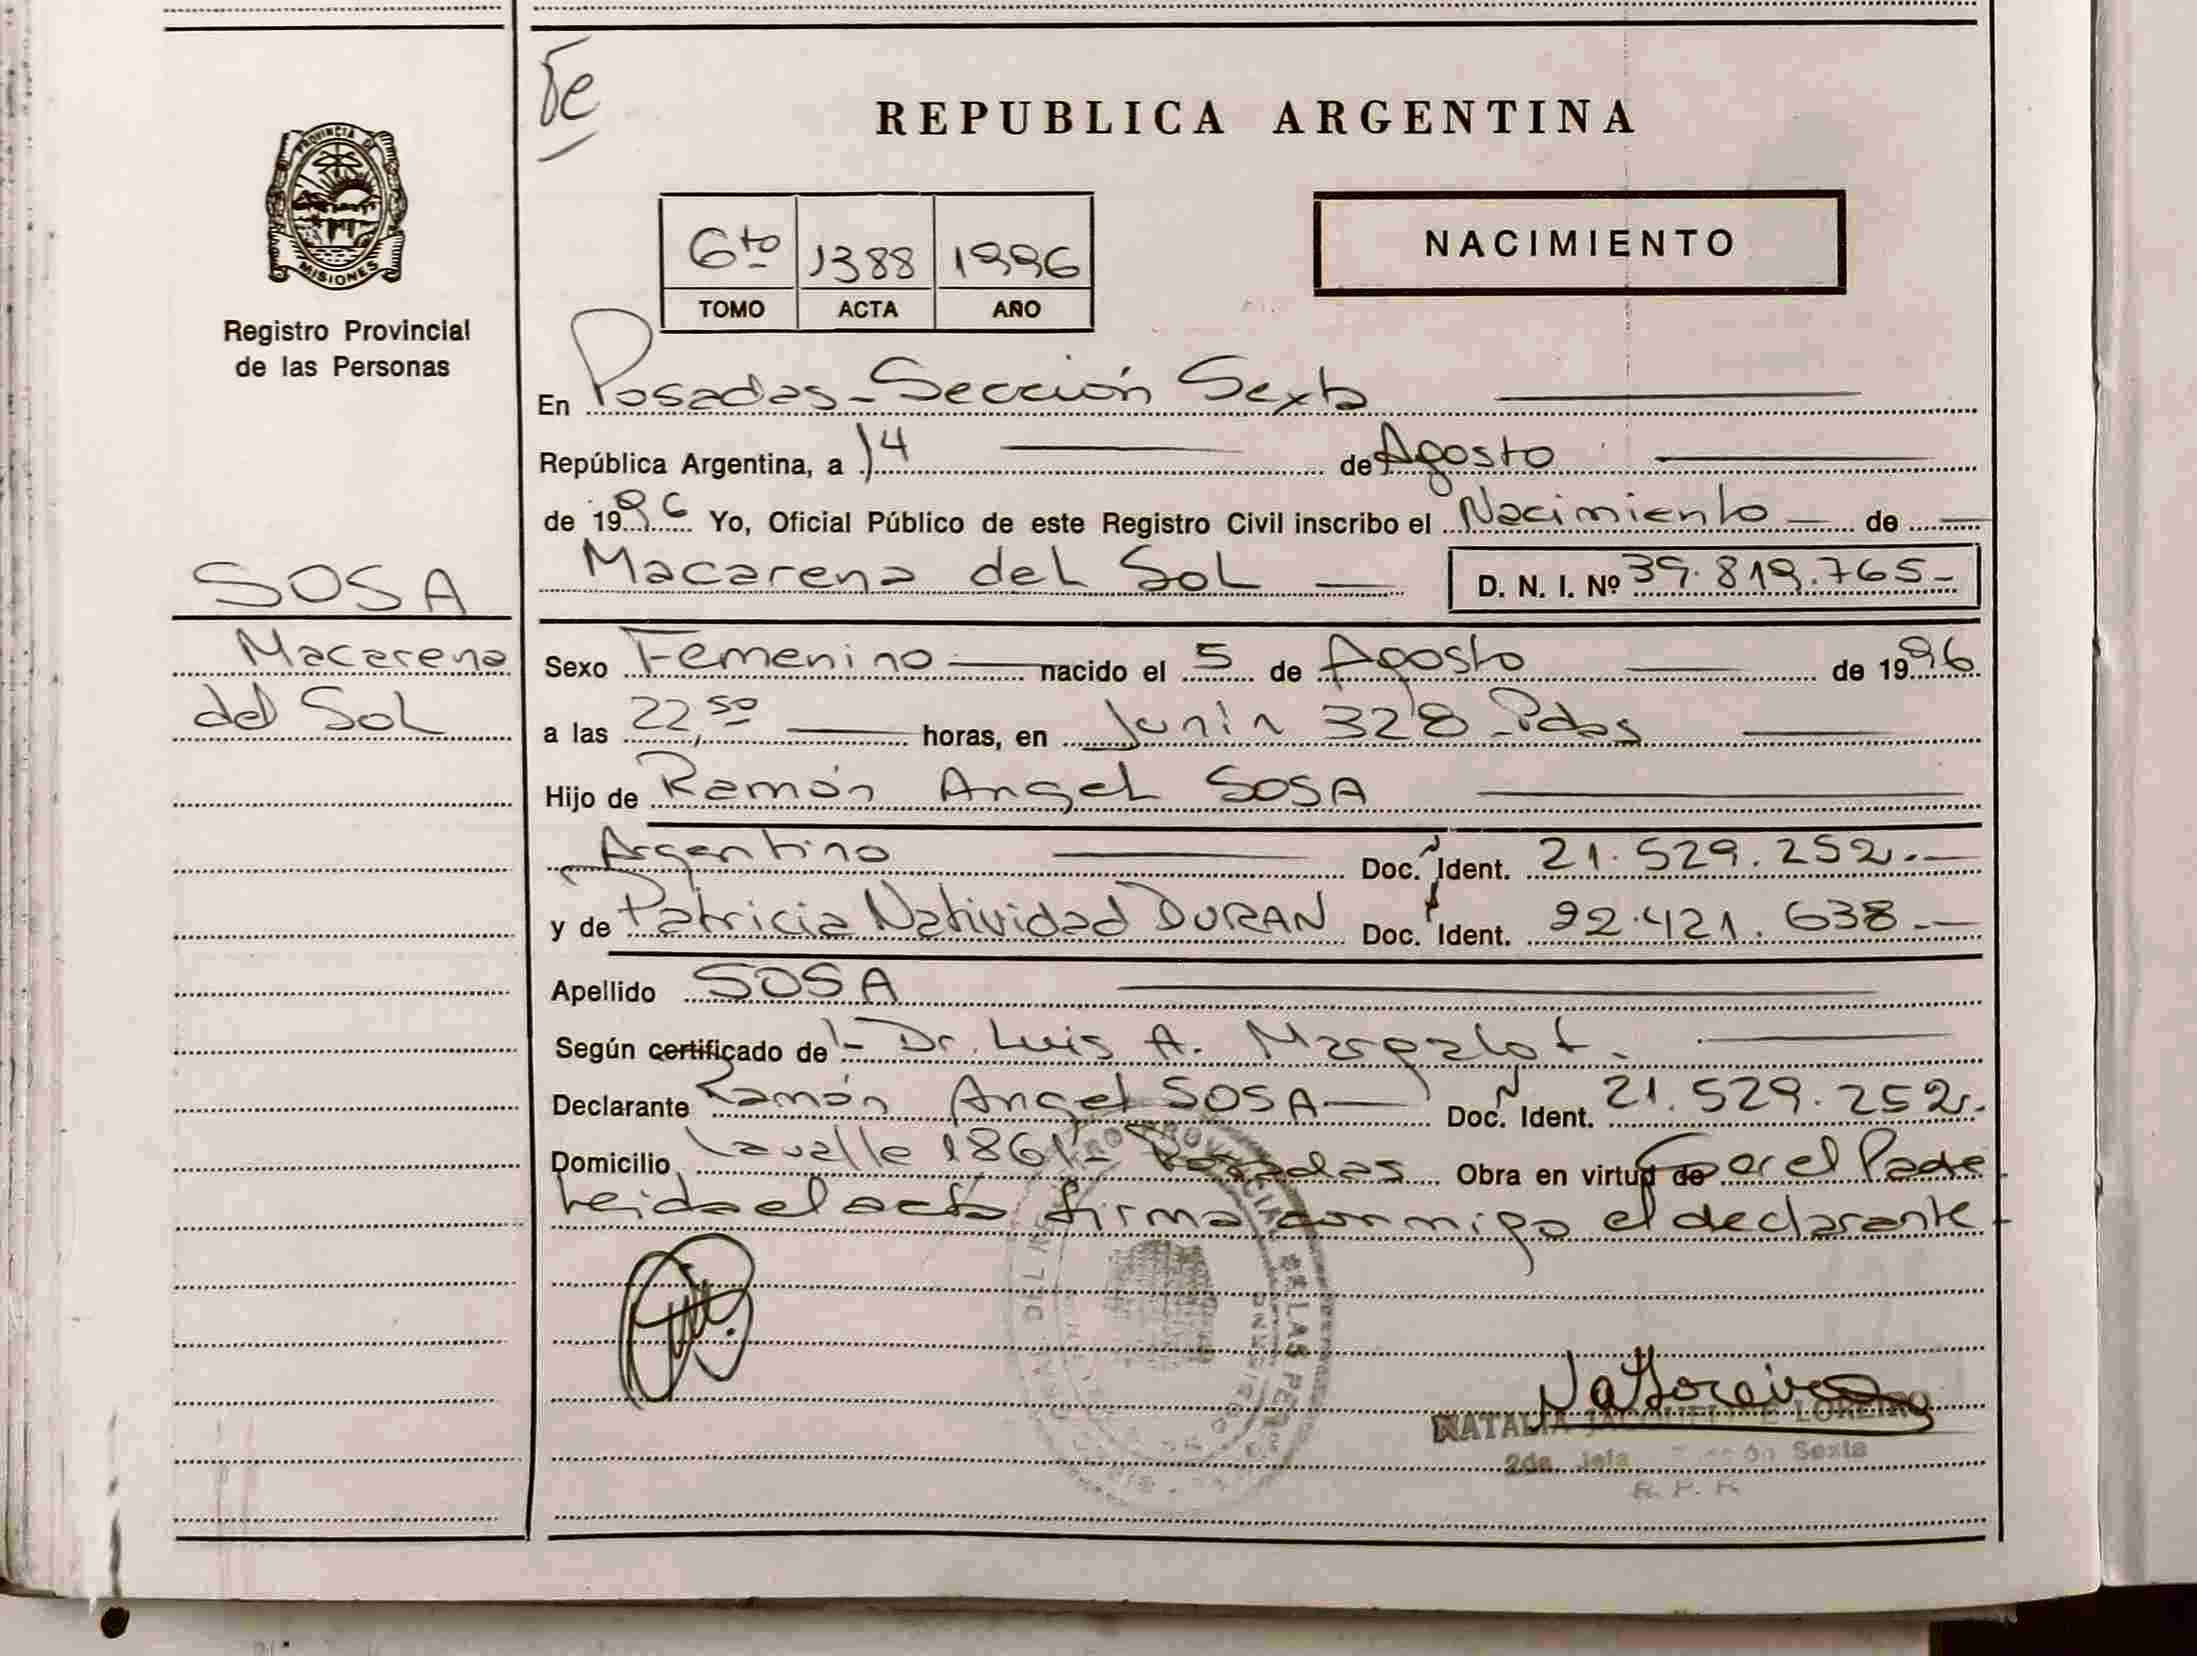 Je
REPUBLICA ARGENTINA
PROVINCIA DE
MISIONES
Registro Provincial
de las Personas
6to 1388 1996
TOMO ACTA AÑO
NACIMIENTO
En Posadas - Sección Sexta
República Argentina, a 14 de Agosto
de 1996 Yo, Oficial Público de este Registro Civil inscribo el Nacimiento de
Macarena del Sol D. N. I. Nº 39.819.765-
SOSA
Macarena
del Sol
Sexo Femenino nacido el 5 de Agosto de 1996
a las 22,50 horas, en Junin 328 - Pdas
Hijo de Ramón Angel SOSA
Argentino Doc. Ident. 21.529.252.-
y de Patricia Natividad DURAN Doc. Ident. 92.421.638.-
Apellido SOSA
Según certificado de l- Dr. Luis A. Margalot.
Declarante Ramón Angel SOSA Doc. Ident. 21.529.252.
Domicilio Lavalle 1861- Posadas Obra en virtud de Ser el Padre
Leida el acta firma conmigo el declarante.
PROVINCIAL DE LAS PERSONAS
NaLoreiro
NATALIA JACQUELINE LOREIRO
2da. Jefa Sección Sexta
R. P. P.